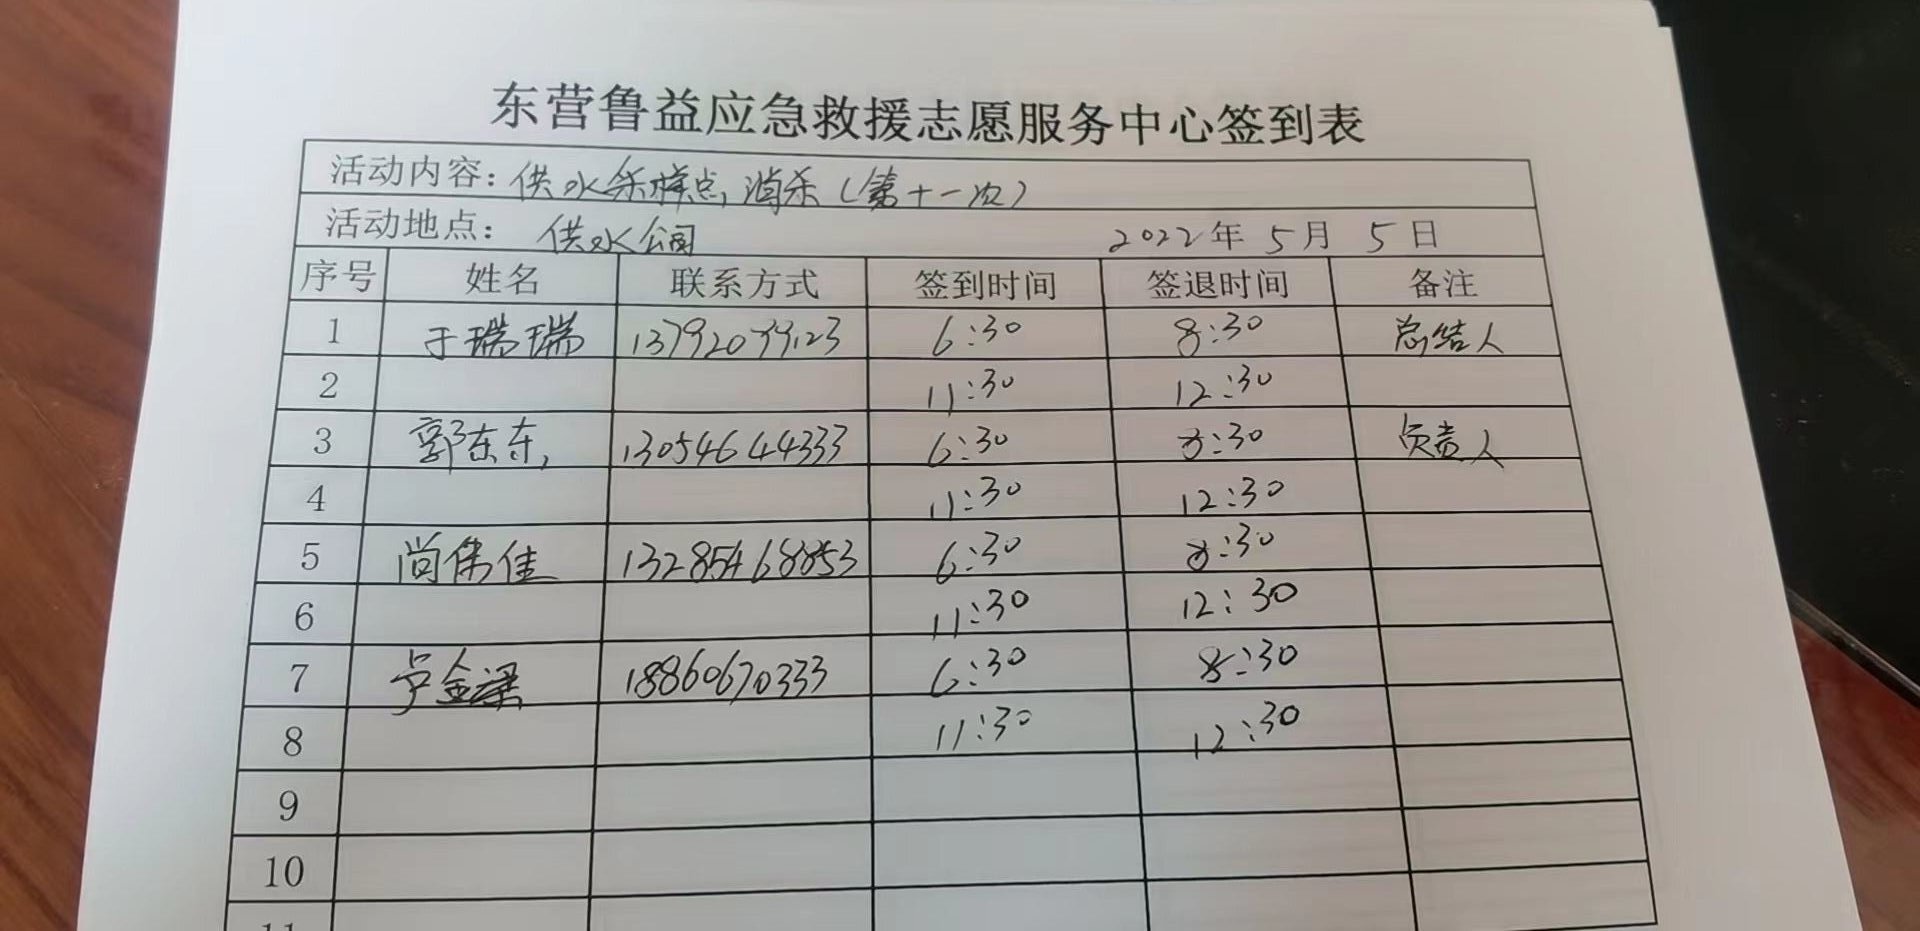 东营鲁益应急救援志愿服务中心签到表
活动内容：供水采样点，消杀（第十一次）
活动地点：供水公司 2022年 5月 5日
序号 姓名 联系方式 签到时间 签退时间 备注
1 于瑞瑞 6:30 8:30 总结人
2 11:30 12:30
3 郭东东, 13054644333 6:30 8:30 负责人
4 11:30 12:30
5 尚伟佳 13285468853 6:30 8:30
6 11:30 12:30
7 卢金梁 18860670333 6:30 8:30
8 11:30 12:30
9
10
11